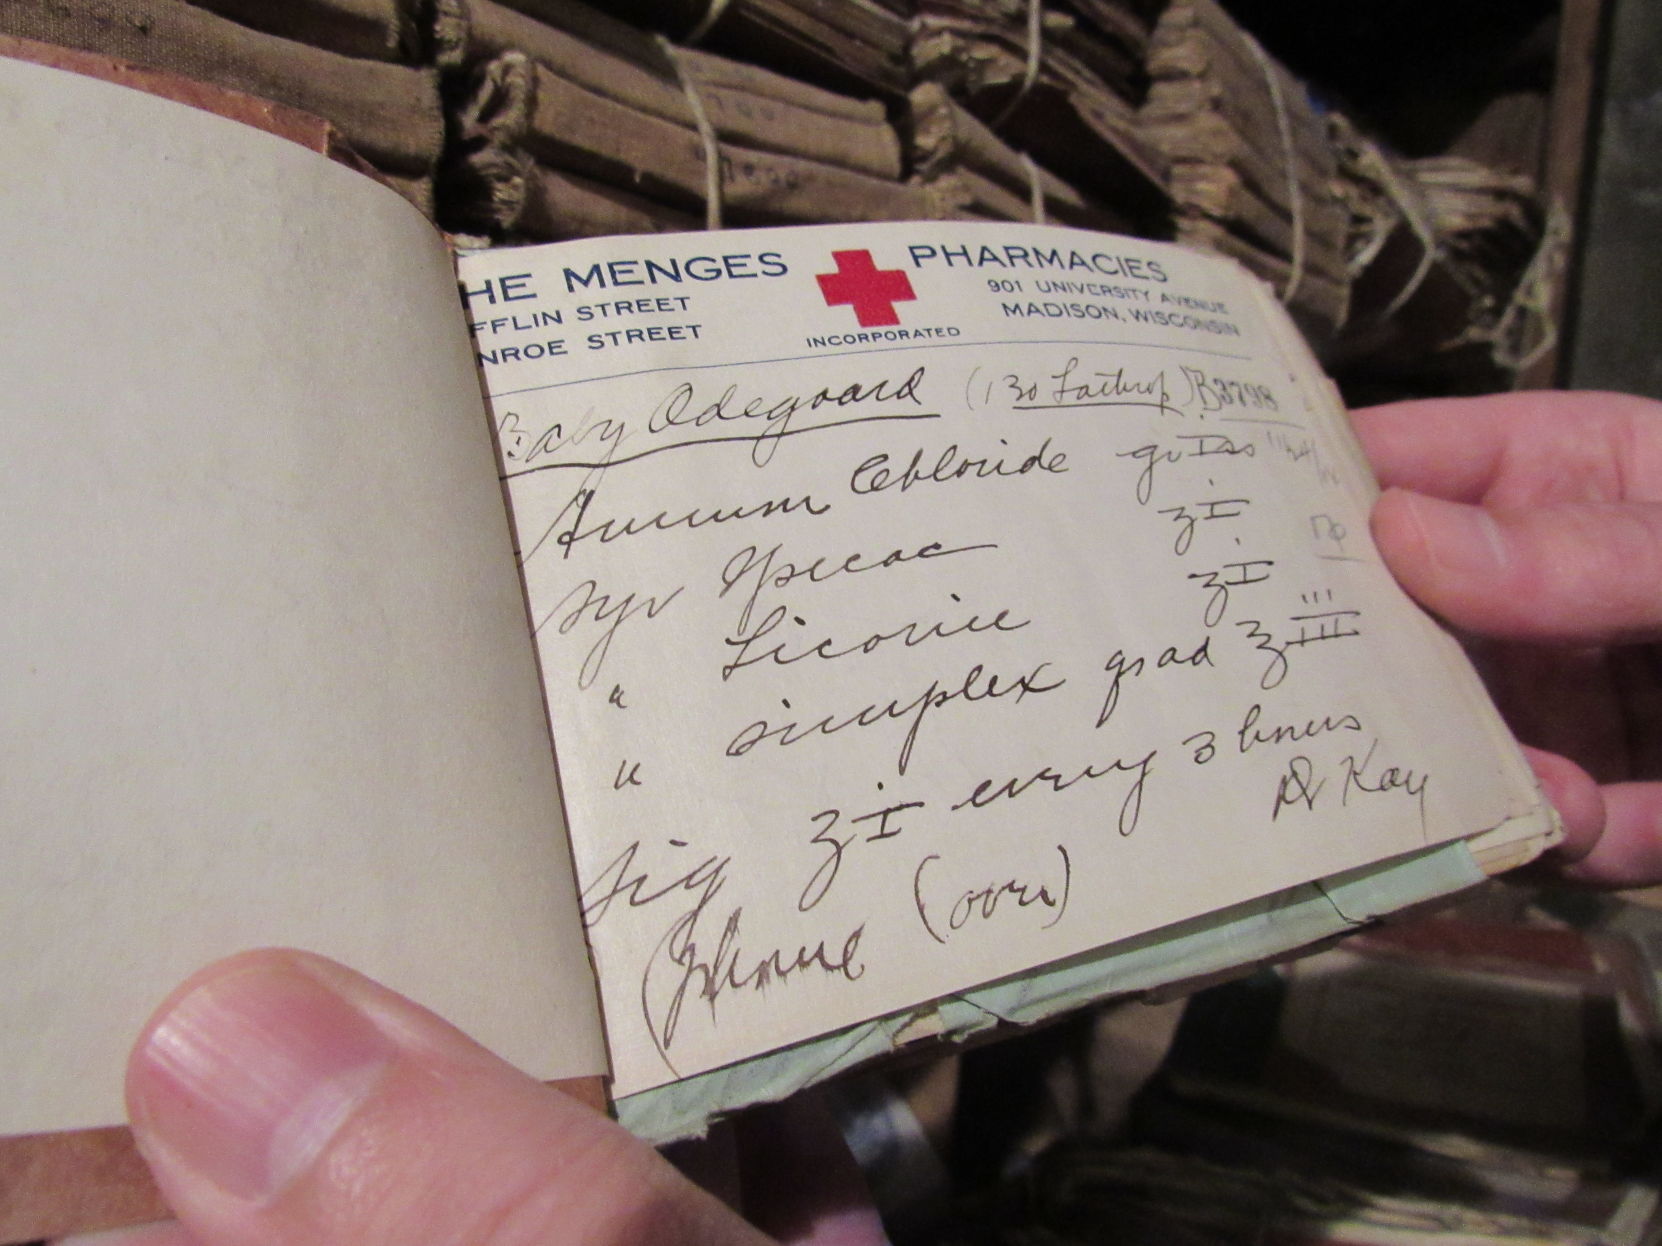 HE MENGES PHARMACIES
FFLIN STREET 901 UNIVERSITY AVENUE
NROE STREET INCORPORATED MADISON, WISCONSIN
Baby Odegaard (130 Lathrop) B3798
Ammm Chloride gr
syr Ipecac ʒİ
" Licorice ʒİ
" simplex qsad ℥III
Sig ʒİ every 3 hours
Dr Kay
(Phone (over)